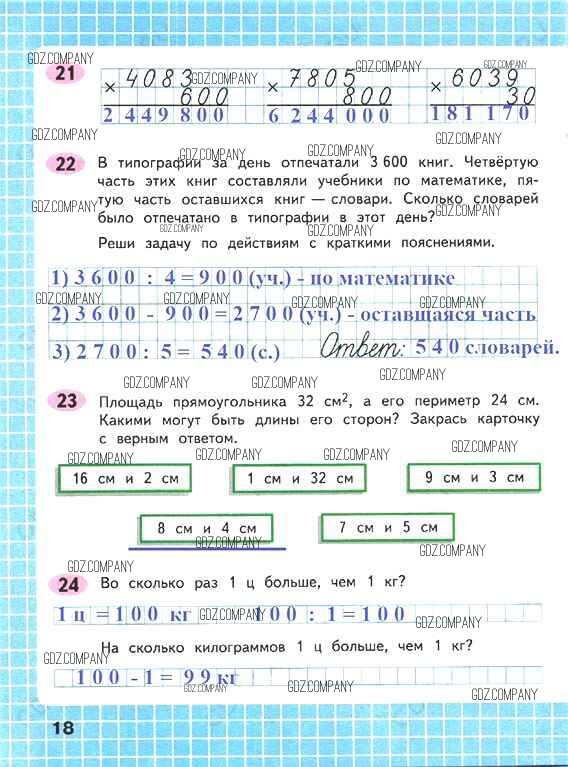 GDZ.COMPANY
21 × 4083 × 7805 × 6039
GDZ.COMPANY GDZ.COMPANY GDZ.COMPANY
600 800 30
2 449 800 6 244 000 181 170
GDZ.COMPANY GDZ.COMPANY
GDZ.COMPANY GDZ.COMPANY
22 В типографии за день отпечатали 3 600 книг. Четвёртую
часть этих книг составляли учебники по математике, пя-
тую часть оставшихся книг — словари. Сколько словарей
GDZ.COMPANY GDZ.COMPANY
было отпечатано в типографии в этот день?
GDZ.COMPANY GDZ.COMPANY
Реши задачу по действиям с краткими пояснениями.
1) 3600 : 4 = 900 (уч.) - по математике
GDZ.COMPANY GDZ.COMPANY GDZ.COMPANY GDZ.COMPANY
2) 3600 - 900 = 2700 (уч.) - оставщаяся часть
GDZ.COMPANY
3) 2700 : 5 = 540 (с.) Ответ: 540 словарей.
GDZ.COMPANY GDZ.COMPANY GDZ.COMPANY
23 Площадь прямоугольника 32 см², а его периметр 24 см.
Какими могут быть длины его сторон? Закрась карточку
с верным ответом.
GDZ.COMPANY GDZ.COMPANY GDZ.COMPANY GDZ.COMPANY
16 см и 2 см 1 см и 32 см 9 см и 3 см
8 см и 4 см 7 см и 5 см
GDZ.COMPANY GDZ.COMPANY
GDZ.COMPANY
24 Во сколько раз 1 ц больше, чем 1 кг?
1 ц = 100 кг 100 : 1 = 100
GDZ.COMPANY GDZ.COMPANY
На сколько килограммов 1 ц больше, чем 1 кг?
GDZ.COMPANY
100 - 1 = 99 кг
GDZ.COMPANY GDZ.COMPANY GDZ.COMPANY
18